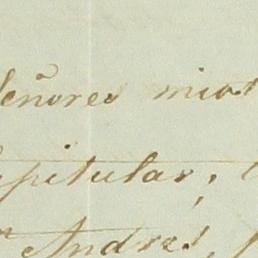 Señores mios
apitular,
Andres,